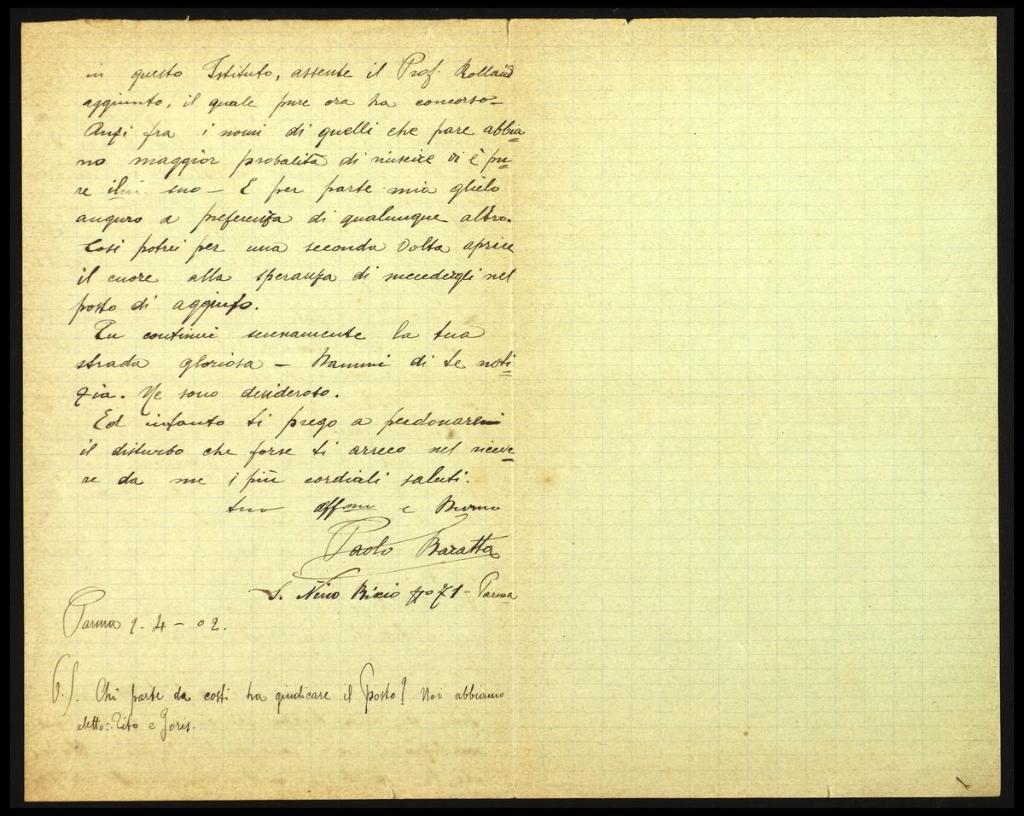 in questo Istituto, assente il Prof. Rolland
aggiunto, il quale pure ora ha concorso–
Anzi fra i nomi di quelli che pare abbia
no maggior probabilità di riuscire vi è pu
re il suo – E per parte mia glielo
auguro a preferenza di qualunque altro.
Così potrei per una seconda volta aprire
il cuore alla speranza di succedergli nel
posto di aggiunto.
Tu continui serenamente la tua
strada gloriosa – Dammi di te noti
zia. Ne sono desideroso.
Ed intanto ti prego a perdonarmi
il disturbo che forse ti arreco nel riceve
re da me i più cordiali saluti.
tuo affmo e
Paolo Baratta
S. Nino Bixio No 71 – Parma
Parma 2-4-02.
P.S. Chi parte da costì ha giudicare il posto? Noi abbiamo
eletto: Tito e Joris.